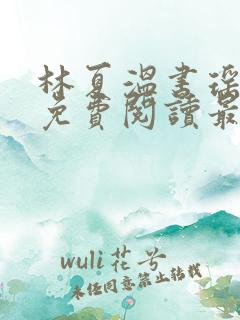 林夏溫書瑤
免費閱讀最
wuli花兮
未经同意禁止转载